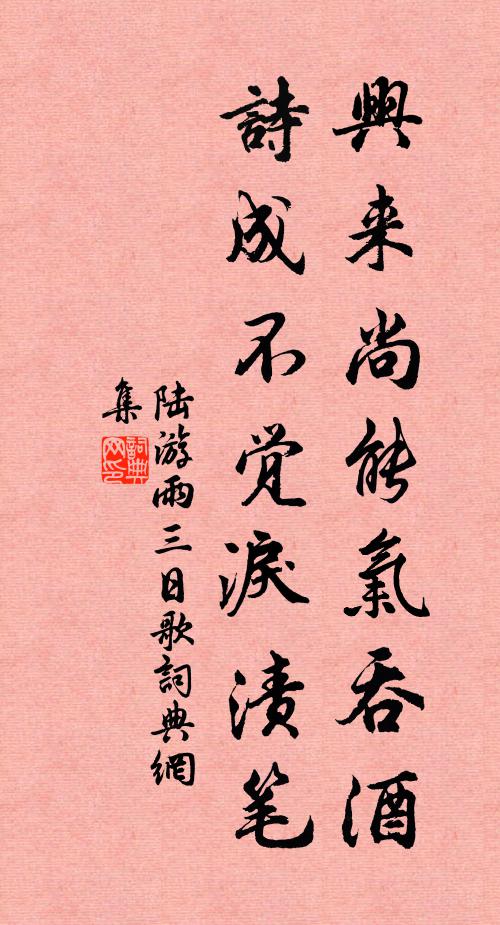 興来尚能氣吞酒
詩成不覚淚漬笔
陆游雨三日歌詞典網
集
詞典
网印